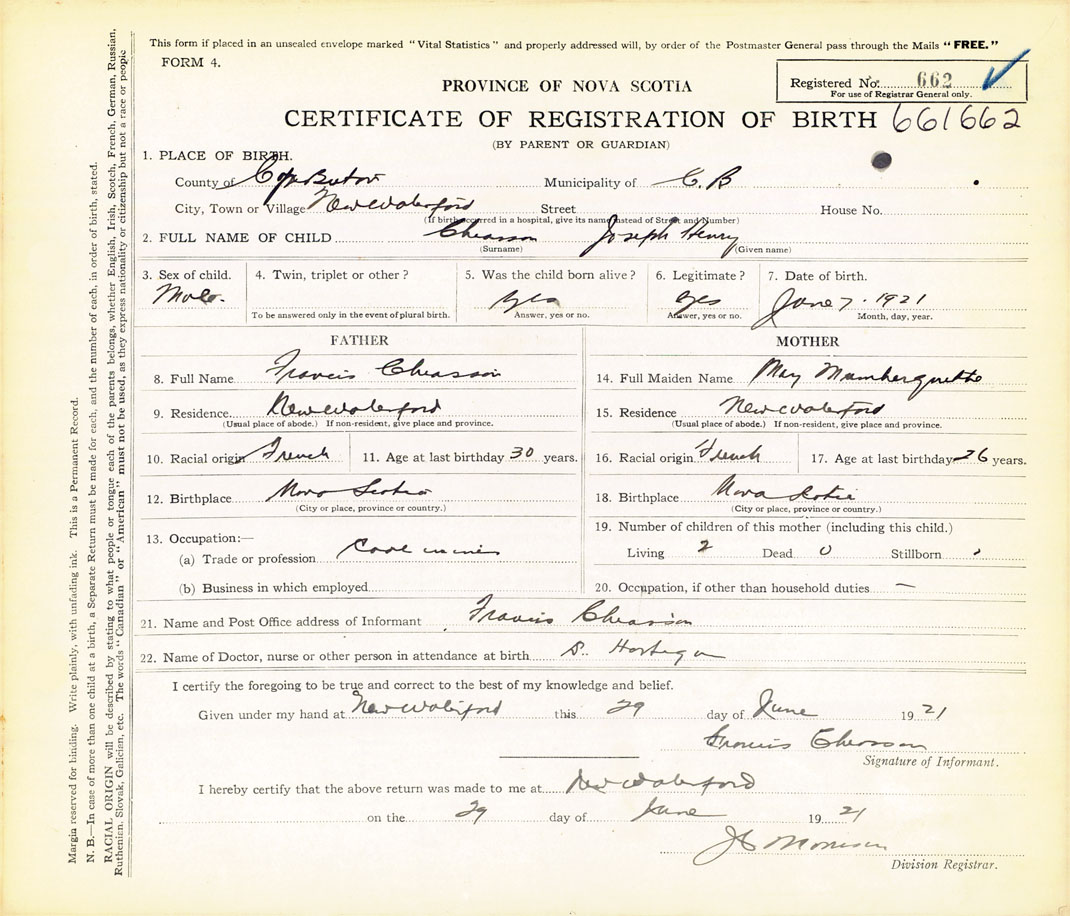 This form if placed in an unsealed envelope marked "Vital Statistics" and properly addressed will, by order of the Postmaster General pass through the Mails "FREE."
FORM 4.
Registered No. 662
For use of Registrar General only.
PROVINCE OF NOVA SCOTIA
CERTIFICATE OF REGISTRATION OF BIRTH 661662
(BY PARENT OR GUARDIAN)
1. PLACE OF BIRTH.
County of Cape Breton Municipality of C. B
City, Town or Village New Waterford Street House No.
(If birth occurred in a hospital, give its name instead of Street and Number)
2. FULL NAME OF CHILD Cheasson Joseph Henry
(Surname) (Given name)
3. Sex of child. 4. Twin, triplet or other? 5. Was the child born alive? 6. Legitimate? 7. Date of birth.
Male. yes yes June 7. 1921
To be answered only in the event of plural birth. Answer, yes or no. Answer, yes or no. Month, day, year.
FATHER
8. Full Name Francis Cheasson
9. Residence New Waterford
(Usual place of abode.) If non-resident, give place and province.
10. Racial origin French 11. Age at last birthday 30 years.
12. Birthplace Nova Scotia
(City or place, province or country.)
13. Occupation:—
(a) Trade or profession
(b) Business in which employed
MOTHER
14. Full Maiden Name May
15. Residence New Waterford
(Usual place of abode.) If non-resident, give place and province.
16. Racial origin French 17. Age at last birthday 26 years.
18. Birthplace Nova Scotia
(City or place, province or country.)
19. Number of children of this mother (including this child.)
Living 2 Dead 0 Stillborn
20. Occupation, if other than household duties —
21. Name and Post Office address of Informant Francis Cheasson
22. Name of Doctor, nurse or other person in attendance at birth
I certify the foregoing to be true and correct to the best of my knowledge and belief.
Given under my hand at New Waterford this 29 day of June 1921
Francis Cheasson
Signature of Informant.
I hereby certify that the above return was made to me at New Waterford
on the 29 day of June 1921
Morrison
Division Registrar.
Margin reserved for binding. Write plainly, with unfading ink. This is a Permanent Record.
N. B.—In case of more than one child at a birth, a Separate Return must be made for each, and the number of each, in order of birth, stated.
RACIAL ORIGIN will be described by stating to what people or tongue each of the parents belongs, whether English, Irish, Scotch, French, German, Russian,
Ruthenian, Slovak, Galician, etc. The words "Canadian" or "American" must not be used, as they express nationality or citizenship but not a race or people